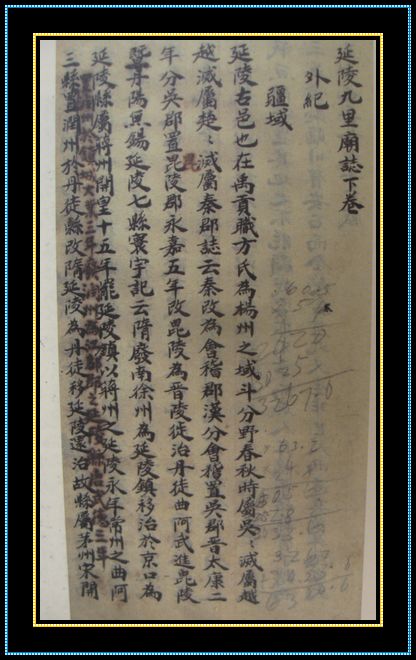 延陵九里廟誌下巻
外紀
疆域
延陵古邑也在禹貢職方氏為楊州之域斗分野春秋時屬吳〻滅屬越
越滅屬楚〻滅屬秦郡誌云秦改為會稽郡漢分會稽置吳郡晉太康二
年分吳郡置毘陵郡永嘉五年改毘陵為晉陵徙治丹徒曲阿武進毘陵
暨丹陽無錫延陵七縣寰宇記云隋廢南徐州為延陵鎮移治於京口為
延陵縣屬蔣州開皇十五年罷延陵鎮以蔣州之延陵永年常州之曲阿
三縣置潤州於鎮城大業三年廢潤州為江都郡之延陵縣唐武德三年
三縣置潤州於丹徒縣改隋延陵為丹徒移延陵還治故縣屬茅州宋開